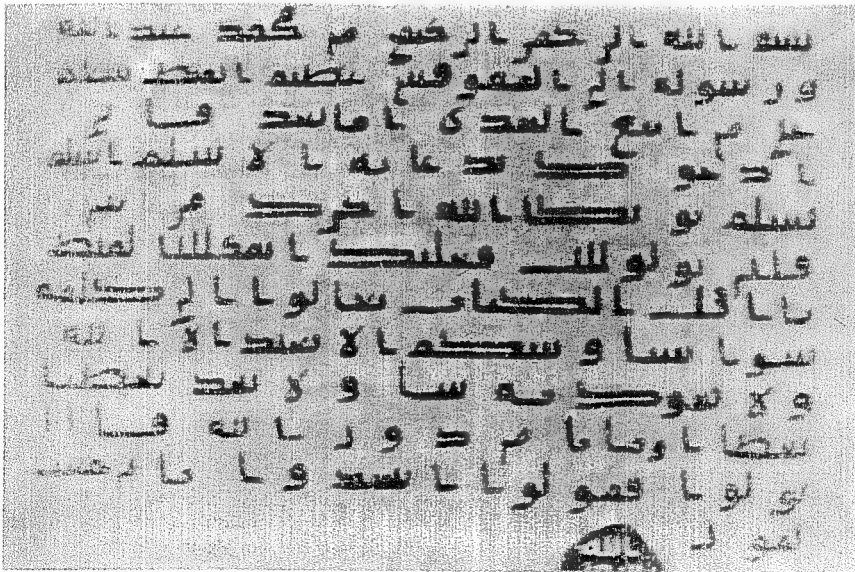 بسم الله الرحمن الرحيم من محمد عبد الله
ورسوله الى المقوقس عظيم القبط سلام
على من اتبع الهدى اما بعد فا ني
ا دعوك بدعاية الاسلام اسلم
تسلم يوتك الله اجرك مر تين
فان توليت فعليك القبط
يا اهل الكتاب تعالوا الى كلمة
سوا بيننا وبينكم الا نعبد الا الله
ولا نشرك به شيا ولا يتخذ بعضنا
بعضا اربابا من دون الله فا
ن تولوا فقولوا اشهدوا بانا مس
لمون